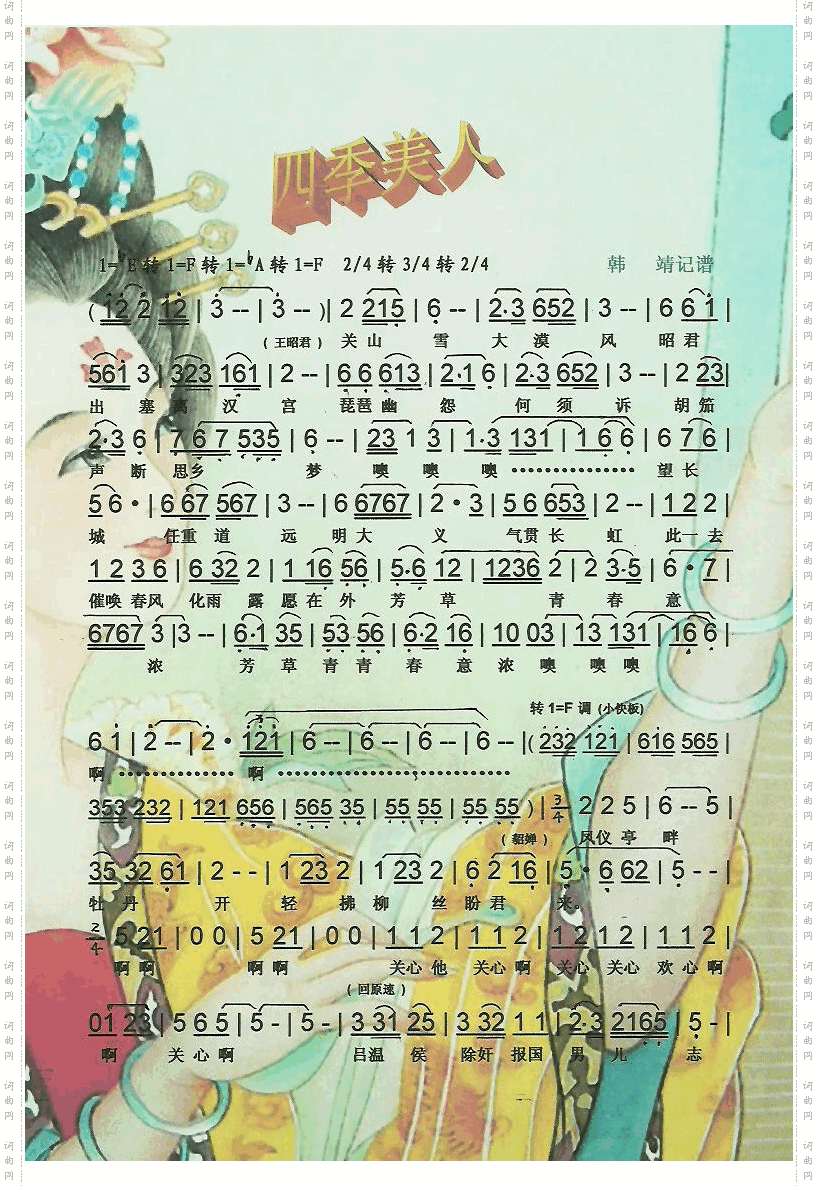 四季美人
1=♭E 转 1=F 转 1=♭A 转 1=F 2/4 转 3/4 转 2/4 韩 靖记谱
( 1̇2̇ 2̇ 1̇2̇ | 3̇ -- | 3̇ -- )| 2 215 | 6 -- | 2·3 652 | 3 -- | 6 6 1̇ |
(王昭君) 关 山 雪 大 漠 风 昭 君
561̇ 3 | 323 161 | 2 -- | 6 6 613 | 2·1 6 | 2·3 652 | 3 -- | 2 23|
出 塞 离 汉 宫 琵琶 幽 怨 何 须 诉 胡 笳
2·3 6 | 7 6 7 535 | 6 -- | 23 1 3 | 1·3 131 | 1 6 6 | 6 7 6 |
声 断 思乡 梦 噢 噢 噢 ·············· 望 长
5 6 · | 6 67 567 | 3 -- | 6 6767 | 2 · 3 | 5 6 653 | 2 -- | 1 2 2 |
城 任重 道 远 明 大 义 气贯 长 虹 此一 去
1 2 3 6 | 6 32 2 | 1 16 56 | 5·6 12 | 1236 2 | 2 3·5 | 6 · 7 |
催唤 春风 化雨 露 愿 在 外 芳 草 青 春 意
6767 3 |3 -- | 6·1 35 | 53 56 | 6·2 16 | 10 03 | 13 131 | 16 6 |
浓 芳 草 青 青 春 意 浓 噢 噢 噢
转 1=F 调 (小快板)
6 1̇ | 2̇ -- | 2̇ · 1̇2̇1̇ | 6 -- | 6 -- | 6 -- | 6 -- |( 2̇3̇2̇ 1̇2̇1̇ | 616 565 |
啊 ·············· 啊 ····························
353 232 | 121 656 | 565 35 | 55 55 | 55 55 ) | 3/4 2 2 5 | 6 -- 5 |
(貂婵) 凤仪 亭 畔
35 32 61 | 2 - - | 1 23 2 | 1 23 2 | 6 2 16 | 5 · 6 62 | 5 - - |
牡 丹 开 轻 拂 柳 丝 盼 君 来。
2/4 5 21 | 0 0 | 5 21 | 0 0 | 1 1 2 | 1 1 2 | 1 2 1 2 | 1 1 2 |
啊 啊 啊 啊 关心 他 关心 啊 关心 关心 欢 心 啊
(回原速)
01 23 | 5 6 5 | 5 - | 5 - | 3 31 25 | 3 32 1 1 | 2·3 2165 | 5 - |
啊 关 心 啊 吕温 侯 除奸 报国 男 儿 志
词曲网